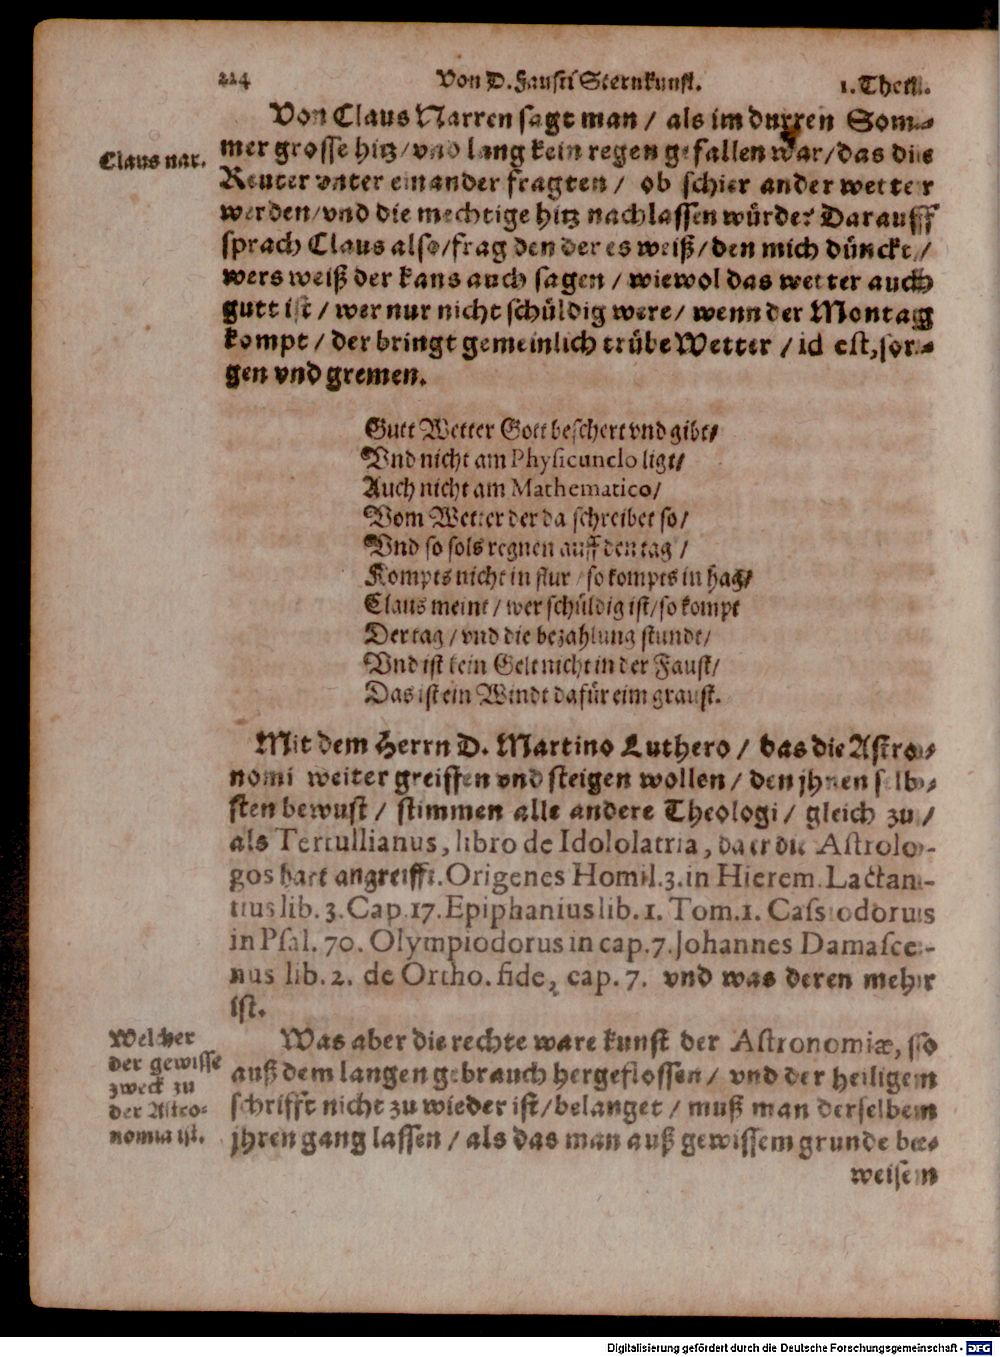 224 Von D. Fausti Sternkunst. 1. Theil.
Von Claus Narren sagt man / als im durren Som-
Claus nar.
mer grosse hitz / vnd lang kein regen gefallen war / das die
Reuter vnter einander fragten / ob schier ander wetter
werden / vnd die mechtige hitz nachlassen würde? Darauff
sprach Claus also / frag den der es weiß / den mich dünckt /
wers weiß der kans auch sagen / wiewol das wetter auch
gutt ist / wer nur nicht schüldig were / wenn der Montag
kompt / der bringt gemeinlich trübe Wetter / id est, sor-
gen vnd gremen.
Gutt Wetter Gott beschert vnd gibt /
Vnd nicht am Physicunclo ligt /
Auch nicht am Mathematico /
Vom Wetter der da schreibet so /
Vnd so sols regnen auff den tag /
Kompts nicht in flur / so kompts in hag /
Claus meint / wer schüldig ist / so kompt
Der tag / vnd die bezahlung stundt /
Vnd ist kein Gelt nicht in der Faust /
Das ist ein Windt dafür eim graust.
Mit dem Herrn D. Martino Luthero / das die Astro-
nomi weiter greiffen vnd steigen wollen / den jhnen selb-
sten bewust / stimmen alle andere Theologi / gleich zu /
als Tertullianus, libro de Idololatria, da er die Astrolo-
gos hart angreifft. Origenes Homil. 3. in Hierem. Lactan-
tius lib. 3. Cap. 17. Epiphanius lib. 1. Tom. 1. Cassiodorus
in Psal. 70. Olympiodorus in cap. 7. Johannes Damasce-
nus lib. 2. de Ortho. fide, cap. 7. vnd was deren mehr
ist.
Welcher
der gewisse
zweck zu
der Astro-
nomia ist.
Was aber die rechte ware kunst der Astronomiæ, so
auß dem langen gebrauch hergeflossen / vnd der heiligen
schrifft nicht zu wieder ist / belanget / muß man derselben
jhren gang lassen / als das man auß gewissem grunde be-
weisen
Digitalisierung gefördert durch die Deutsche Forschungsgemeinschaft - DFG